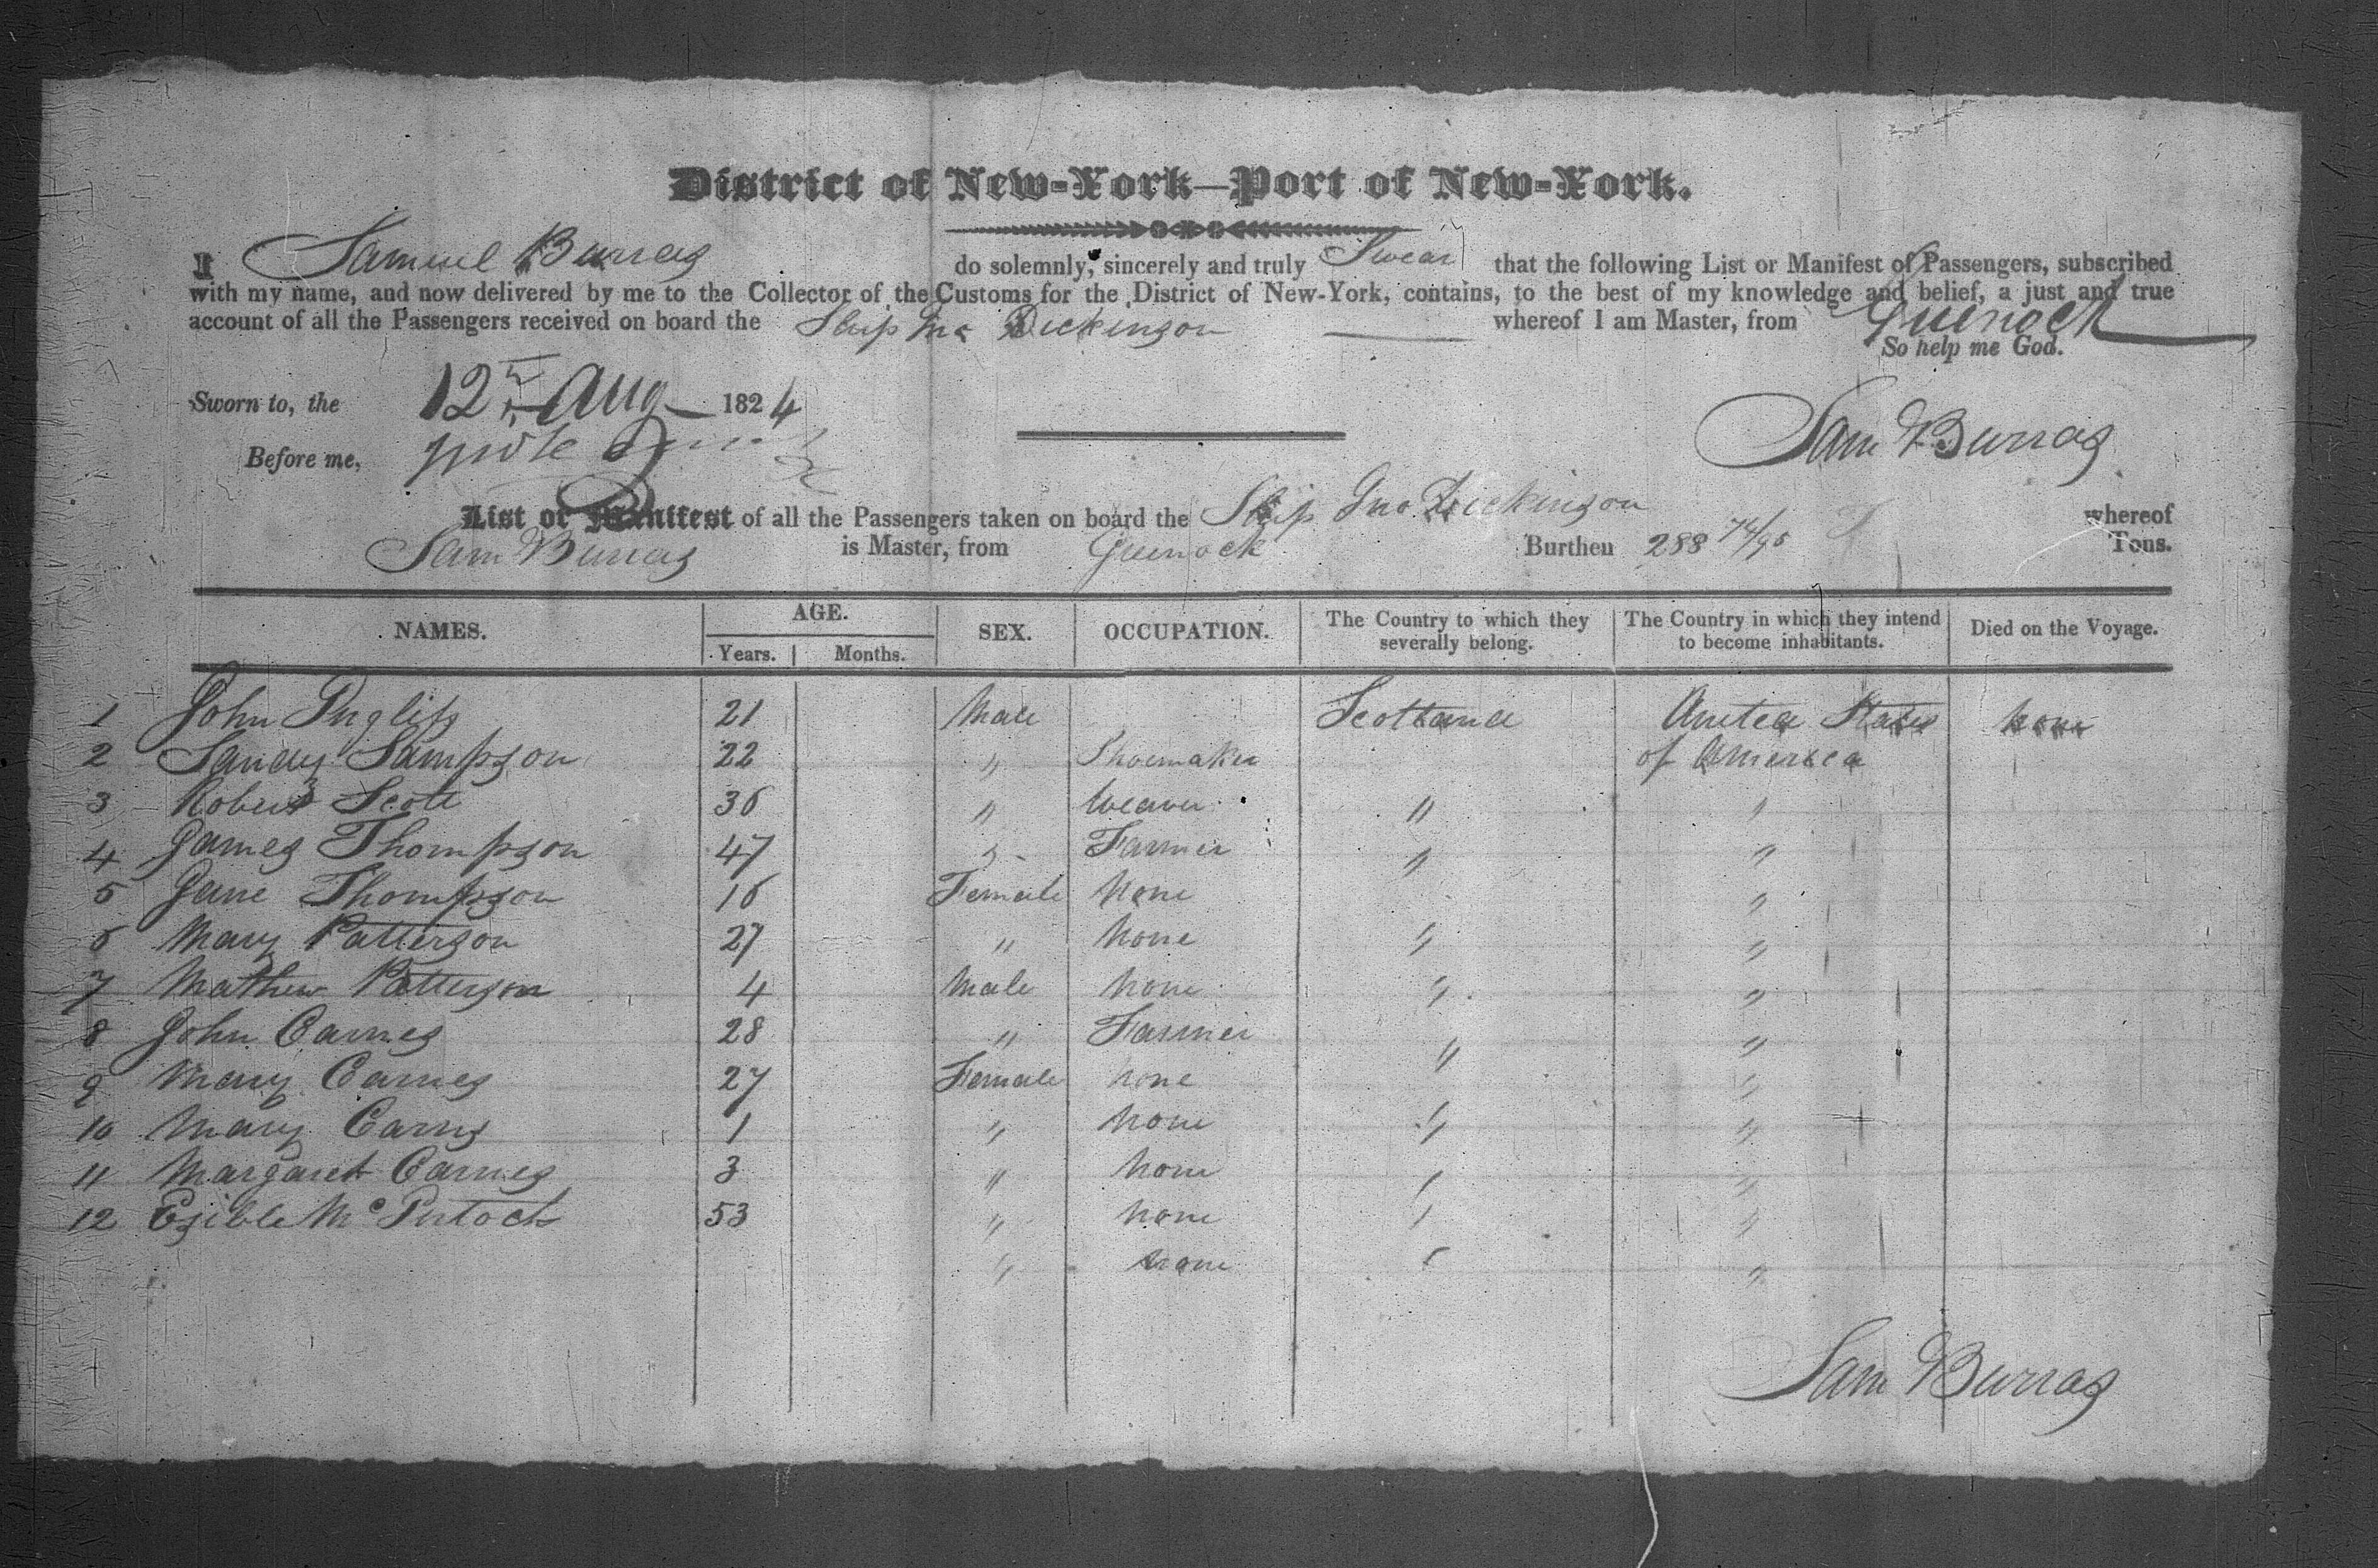 District of New-York—Port of New-York.
I Samuel Burras do solemnly, sincerely and truly Swear that the following List or Manifest of Passengers, subscribed
with my name, and now delivered by me to the Collector of the Customs for the District of New-York, contains, to the best of my knowledge and belief, a just and true
account of all the Passengers received on board the Ship Jno Dickinson whereof I am Master, from Greenock
So help me God.
Sworn to, the 12th Aug 1824
Before me,
Sam Burras
List or Manifest of all the Passengers taken on board the Ship Jno Dickinson whereof
Sam Burras is Master, from Greenock Burthen 288 74/95 Tons.
NAMES. AGE. Years. Months. SEX. OCCUPATION. The Country to which they severally belong. The Country in which they intend to become inhabitants. Died on the Voyage.
1 John Inglis 21 Male Scotland United States none
2 Sandy Sampson 22 " Shoemaker of America
3 Robert Scott 36 " Weaver " "
4 James Thompson 47 " Farmer " "
5 Jane Thompson 16 Female None "
6 Mary Patterson 27 " None " "
7 Mathew Patterson 4 Male None " "
8 John Carnes 28 " Farmer " "
9 Mary Carnes 27 Female none "
10 Mary Carns 1 " none " "
11 Margaret Carnes 3 " None " "
12 Esible McIntoch 53 " none " "
" none " "
Sam Burras